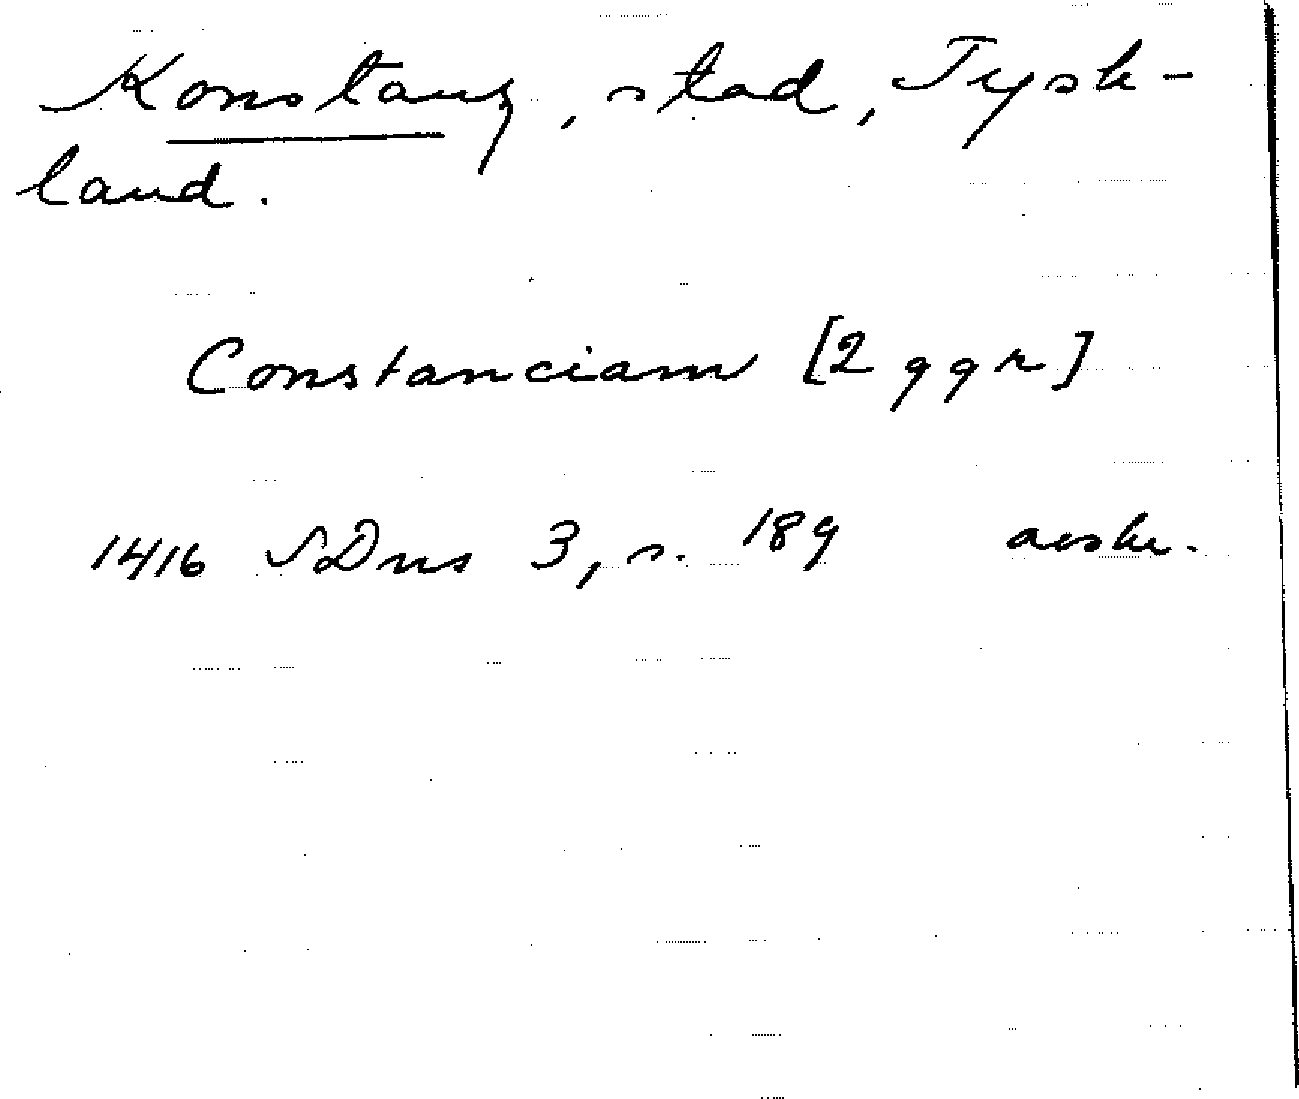 Konstanz, stad, Tysk-
land.
Constanciam [2 ggr]
1416 SDns 3, s. 189 avskr.